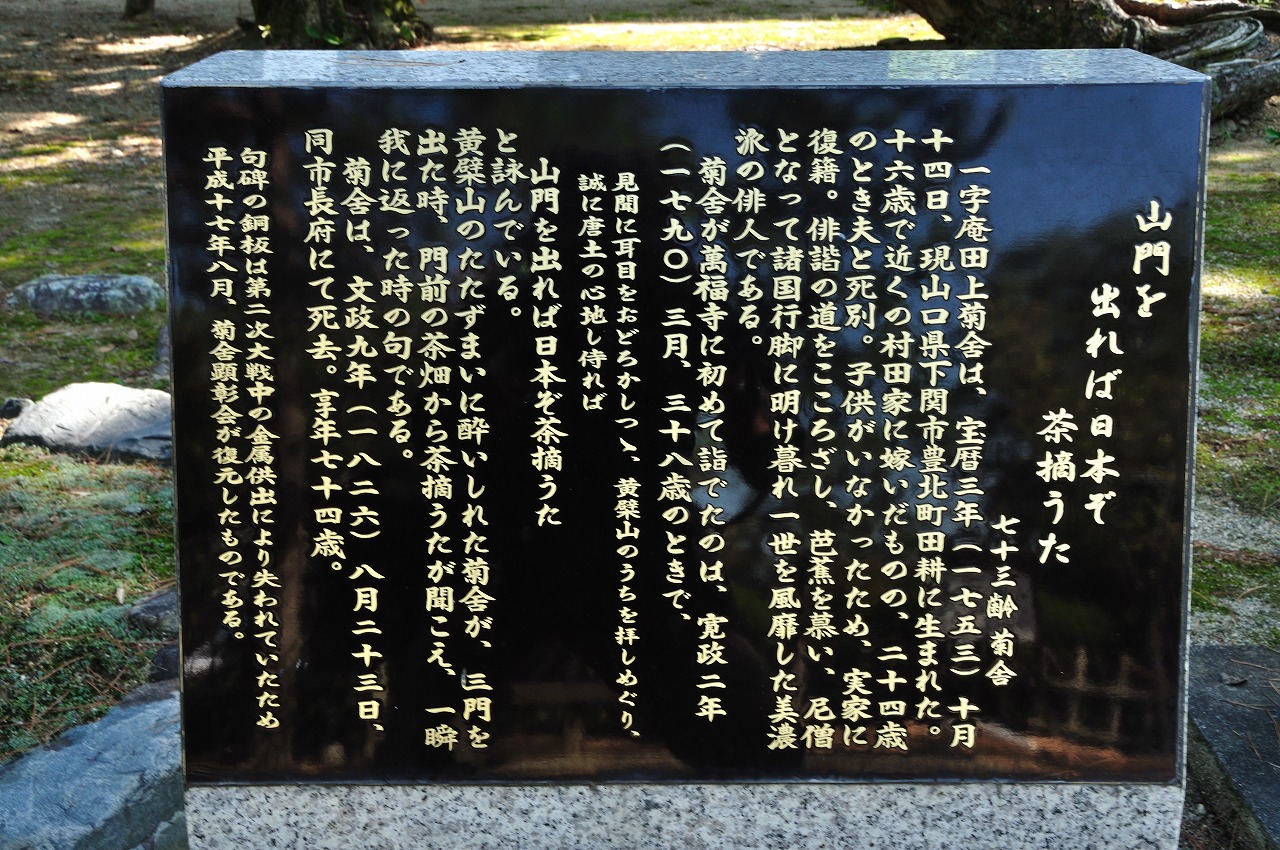 山門を
出れば日本ぞ
茶摘うた
七十三齢 菊舎
一字庵田上菊舎は、宝暦三年（一七五三）十月
十四日、現山口県下関市豊北町田耕に生まれた。
十六歳で近くの村田家に嫁いだものの、二十四歳
のとき夫と死別。子供がいなかったため、実家に
復籍。俳諧の道をこころざし、芭蕉を慕い、尼僧
となって諸国行脚に明け暮れ一世を風靡した美濃
派の俳人である。
菊舎が萬福寺に初めて詣でたのは、寛政二年
（一七九〇）三月、三十八歳のときで、
見聞に耳目をおどろかしつゝ、黄檗山のうちを拝しめぐり、
誠に唐土の心地し侍れば
山門を出れば日本ぞ茶摘うた
と詠んでいる。
黄檗山のたたずまいに酔いしれた菊舎が、三門を
出た時、門前の茶畑から茶摘うたが聞こえ、一瞬
我に返った時の句である。
菊舎は、文政九年（一八二六）八月二十三日、
同市長府にて死去。享年七十四歳。
句碑の銅板は第二次大戦中の金属供出により失われていたため
平成十七年八月、菊舎顕彰会が復元したものである。